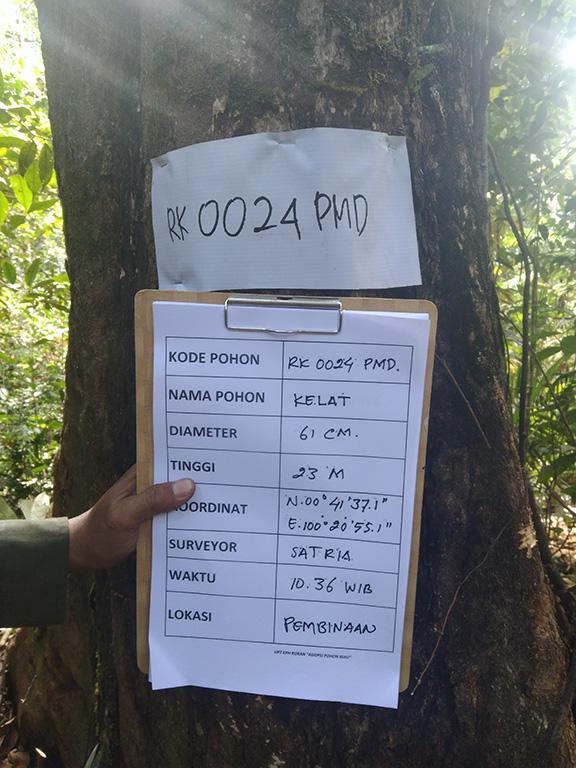 RK 0024 PMD
KODE POHON RK 0024 PMD.
NAMA POHON KELAT
DIAMETER 61 CM.
TINGGI 23 M
KOORDINAT N.00°41'37.1"
E.100°20'55.1"
SURVEYOR SATRIA
WAKTU 10.36 WIB
LOKASI PEMBINAAN
UPT KPH ROKAN "ADOPSI POHON RIAU"